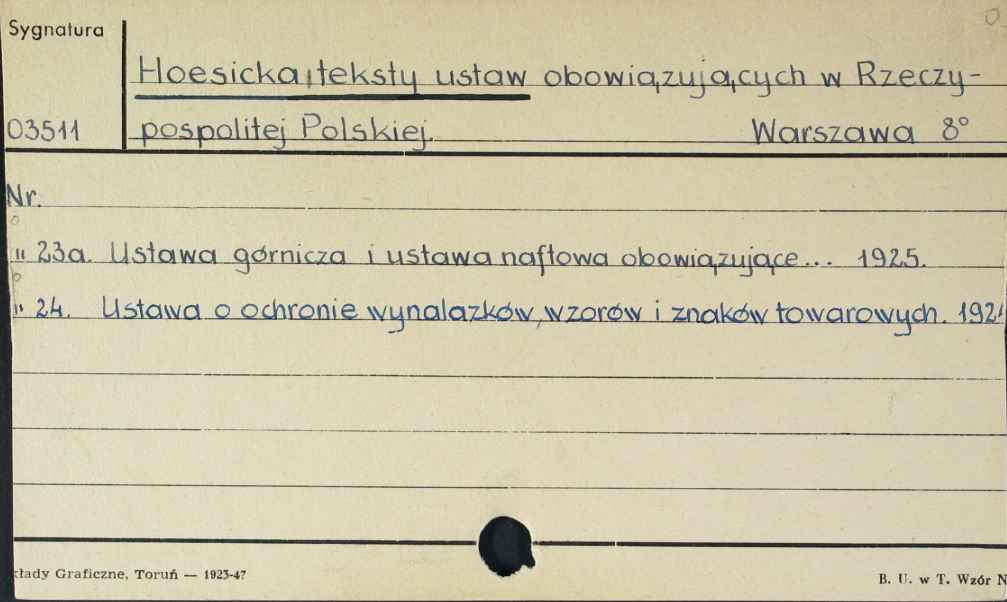 Sygnatura
Hoesicka, teksty ustaw obowiązujących w Rzeczy-
03511 pospolitej Polskiej. Warszawa 8°
Nr.
" 23a. Ustawa górnicza i ustawa naftowa obowiązujące... 1925.
" 24. Ustawa o ochronie wynalazków, wzorów i znaków towarowych.
kłady Graficzne, Toruń — 1923-47
B. U. w T. Wzór N